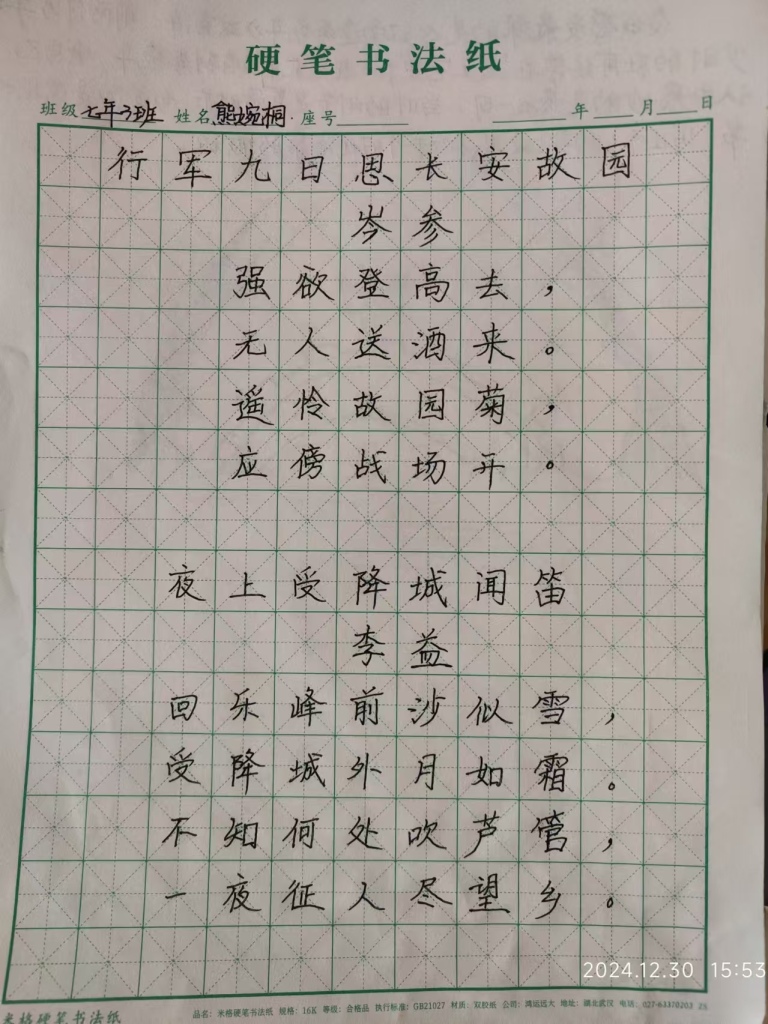 硬笔书法纸
班级 七年3班 姓名 熊婉桐 座号 年 月 日
行军九日思长安故园
岑参
强欲登高去，
无人送酒来。
遥怜故园菊，
应傍战场开。
夜上受降城闻笛
李益
回乐峰前沙似雪，
受降城外月如霜。
不知何处吹芦管，
一夜征人尽望乡。
2024.12.30 15:53
米格硬笔书法纸 品名：米格硬笔书法纸 规格：16K 等级：合格品 执行标准：GB21027 材质：双胶纸 公司：鸿运远大 地址：湖北武汉 电话：027-63370203